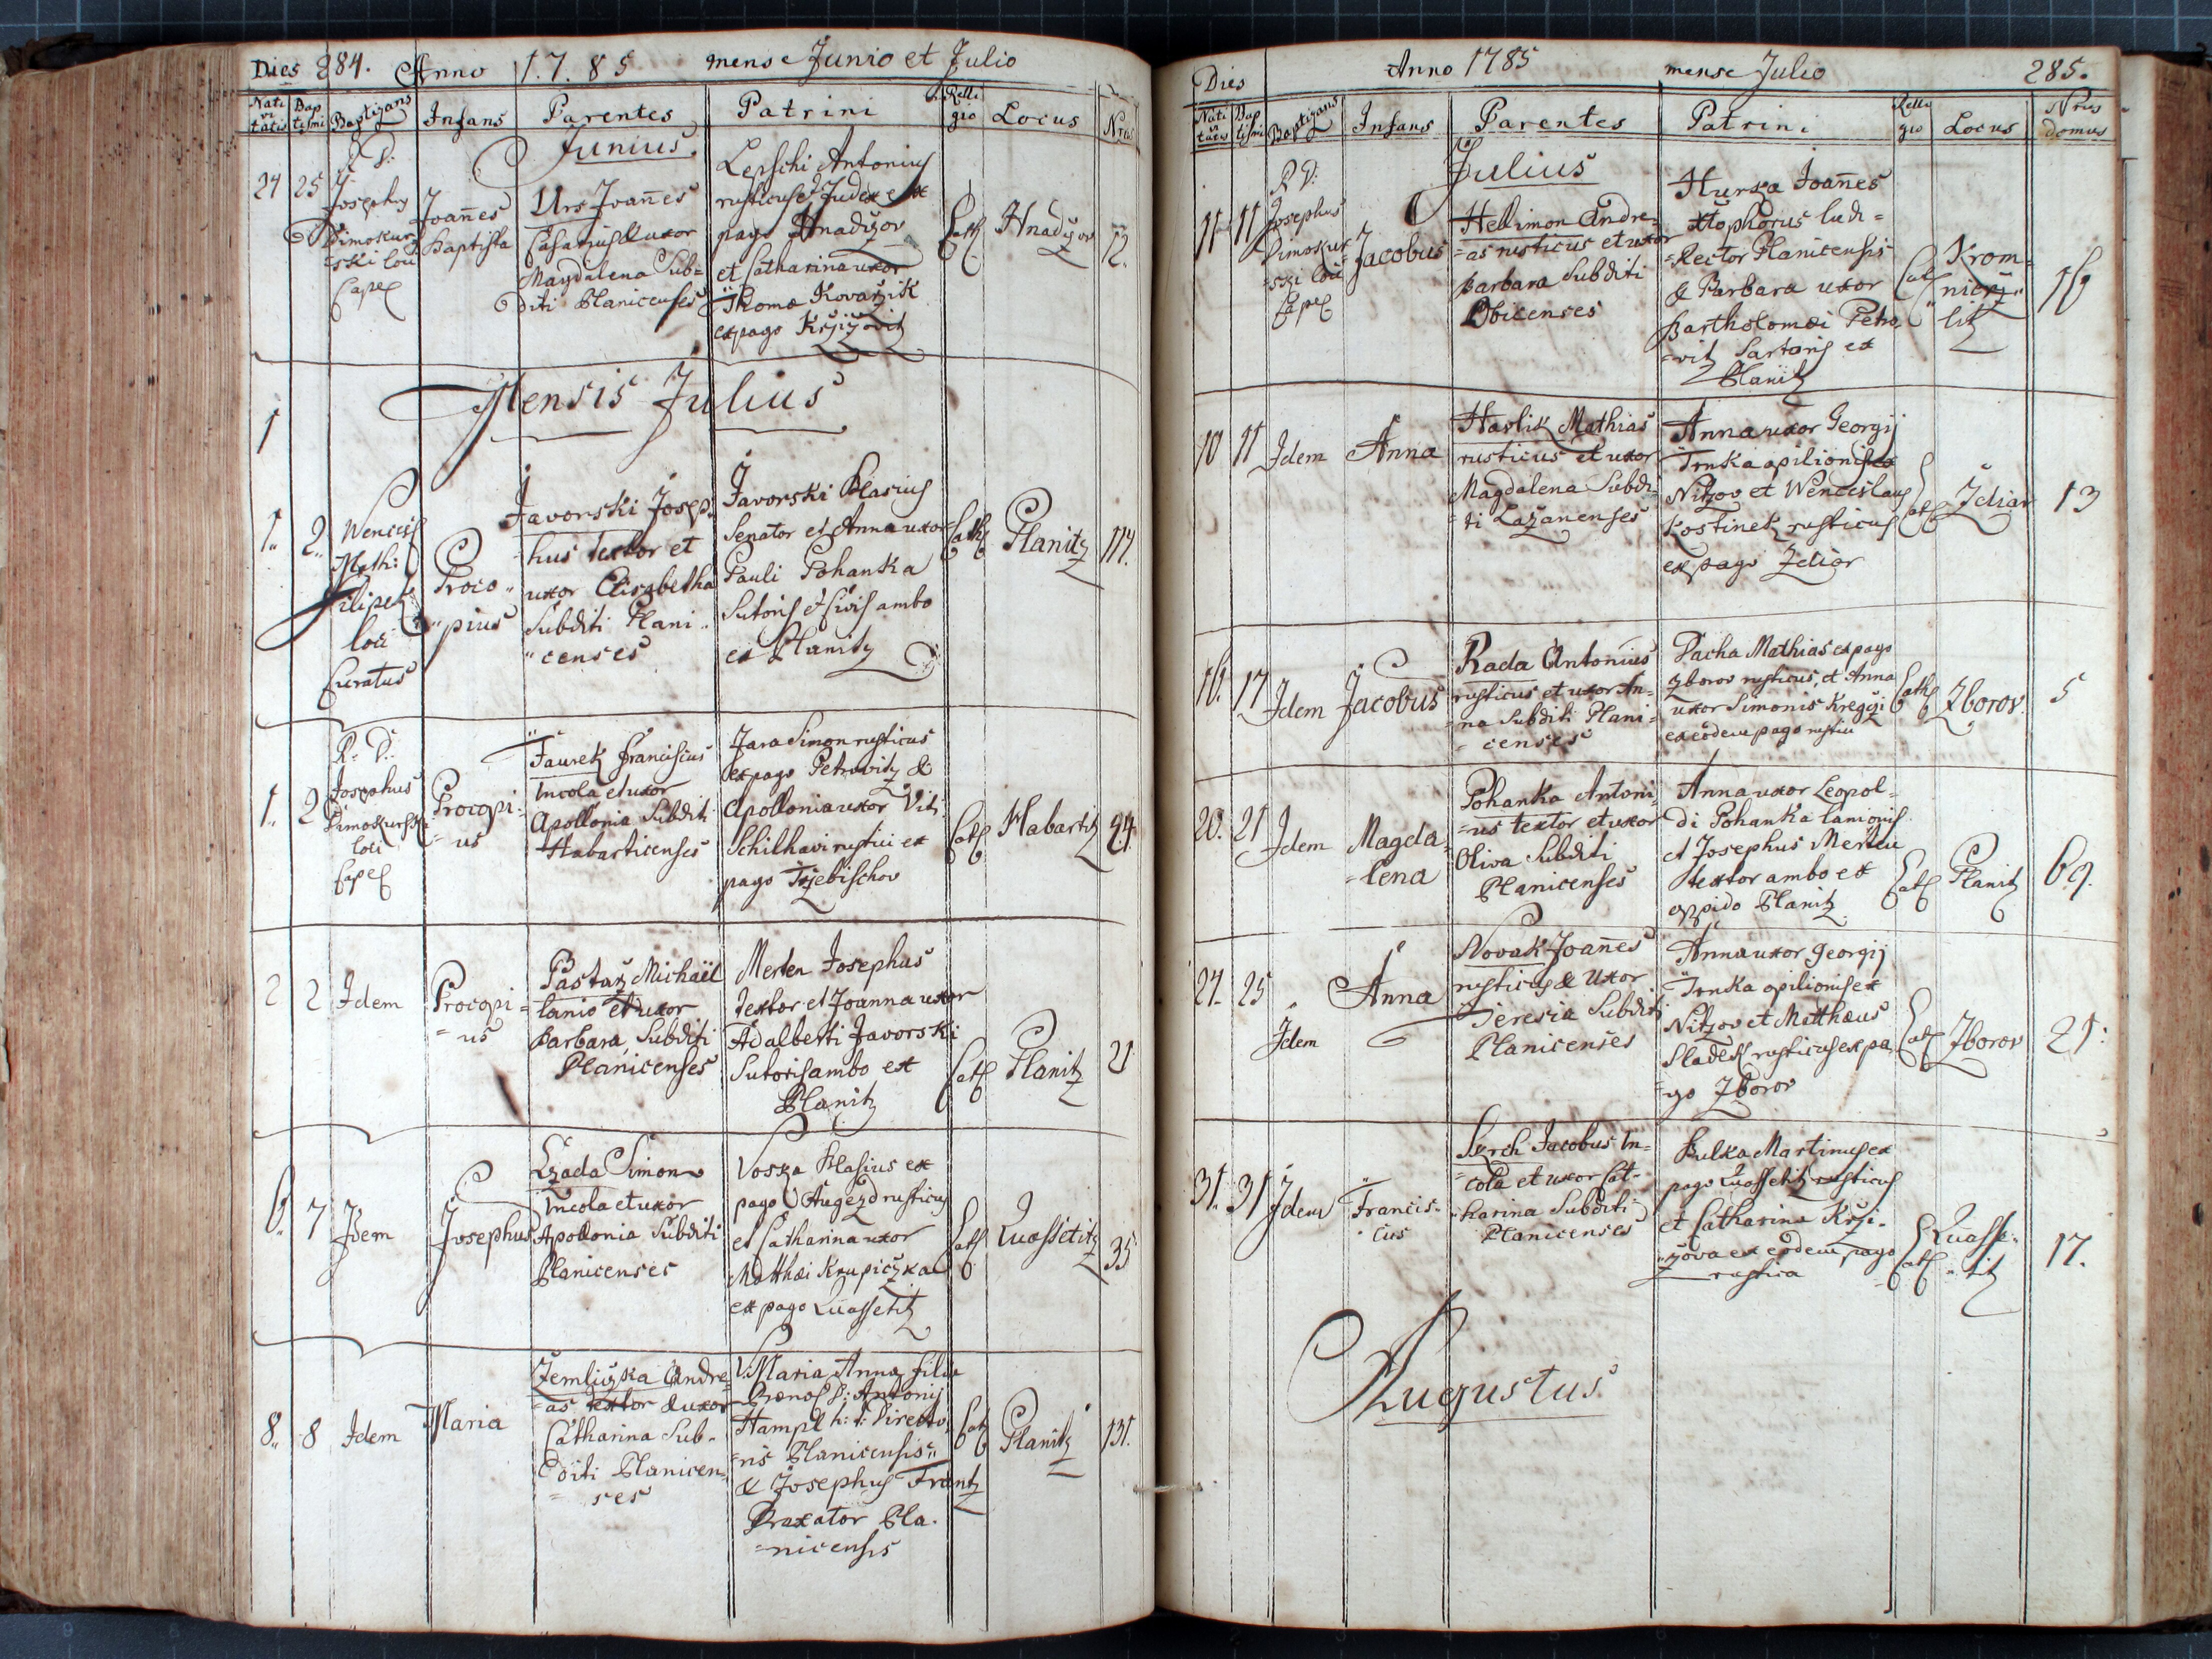 Dies 284. Anno 1.7.85 mense Junio et Julio
Nati vi tatis Bap tismi Baptizans Infans Parentes Patrini Relli gio Locus Nrus
Junius
24 25
R. D:
Josephus
Dimokur
=ski loci
Cape
Joañes
Baptista
Urs Joañes
Casarius & uxor
Magdalena Sub=
diti Planicenses
Lepschi Antonius
rusticus & Judex ex
pago Hnadizov
et Catharina uxor
Thoma Kovarzik
ex pago Krjizovitz
Cath
Hnadizov
12.
Mensis Julius
1
1.. 2..
Wencesl
Math:
Filipek
loci
Curatus
Proco..
..pius
Javorski Josep.
hus textor et
uxor Elisabetha
Subditi Plani..
..censes
Javorski Blasius
Senator et Anna uxor
Pauli Pohanka
Sutoris & Civis ambo
ex Planitz
Cath
Planitz
114.
1.. 2
R. D:
Josephus
Dimokurski
loci
Cape
Procopi=
=us
Taurek Franciscus
Incola et uxor
Apollonia Subditi
Habarticenses
Jara Simon rusticus
ex pago Petrovitz &
Apollonia uxor Viti
Schilhavi rustici ex
pago Trzebischov
Cath
Habartitz
24.
2 2 Idem
Procopi=
=us
Pastarz Michaël
lanio et uxor
Barbara Subditi
Planicenses
Merten Josephus
textor et Joanna uxor
Adalberti Javorski
Sutoris ambo ex
Planitz
Cath
Planitz
21
6.. 7 Idem
Josephus
Lzada Simon
Incola et uxor
Apollonia Subditi
Planicenses
Voska Blasius ex
pago Augezd rusticus
et Catharina uxor
Matthæi Krupiczka
ex pago Quassetitz
Cath
Quassetitz
35
8.. 8 Idem
Maria
Zemliczka Andre=
=as textor & uxor
Catharina Sub-
diti Planicen=
= ses
V. Maria Anna filia
Antonij
Hampl h: t: Directo
=ris Planicensis..
& Josephus Frantz
Braxator Pla.
=nicensis
Cath
Planitz
131.
Dies Anno 1785 mense Julio 285.
Nati vi tatis Bap tismi Baptizans Infans Parentes Patrini Relli gio Locus Nrus domus
Julius
11 11
R D:
Josephus
Dimokur
=ski loci
Cape
Jacobus
Hellimon Andre=
=as rusticus et uxor
Barbara Subditi
Obicenses
Hurka Joañes
Xtophorus ludi=
=Rector Planicensis
& Barbara uxor
Bartholomæi Petro
=witz Sartoris ex
Planitz
Cath
Krom
nierz..
litz
16
10 11 Idem Anna
Havlik Mathias
rusticus et uxor
Magdalena Subdi=
=ti Lazanenses
Anna uxor Georgij
Trnka opilionis ex
Nitzov et Wenceslaus
Kostinek rusticus
ex pago Zdiar
Cath
Zdiar
13
16. 17 Idem Jacobus
Rada Antonius
rusticus et uxor An=
=na Subditi Plani=
= censes
Pacha Mathias ex pago
Zborov rusticus, et Anna
uxor Simonis Kregczi
ex eodem pago rustici
Cath
Zborov.
5
20. 21 Idem
Magda=
=lena
Pohanka Antoni=
=us textor et uxor
Oliva Subditi
Planicenses
Anna uxor Leopol=
di Pohanka lanionis
et Josephus Merten
textor ambo ex
oppido Planitz
Cath
Planitz
69.
24. 25
Idem
Anna
Novak Joañes
rusticus & Uxor
Teresia Subditi
Planicenses
Anna uxor Georgij
Trnka opilionis ex
Nitzov et Matthæus
Sladek rusticus ex pa
=go Zborov
Cath
Zborov
21.
31. 31 Idem
Francis=
cus
Skrch Jacobus In=
=cola et uxor Cat=
=harina Subditi
Planicenses
Bulka Martinus ex
pago Quassetitz rusticus
et Catharina Krzi=
=zova ex eodem pago
rustica
Cath
Quasse..
..titz
17.
Augustus